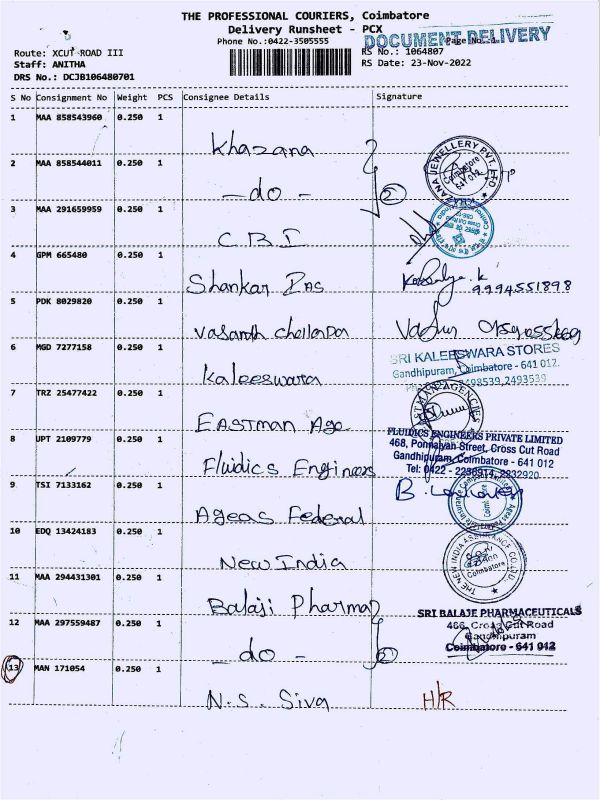 THE PROFESSIONAL COURIERS, Coimbatore
Delivery Runsheet - PCX
Phone No.:0422-3505555
DOCUMENT DELIVERY
Page No. 1
Route: XCUT ROAD III
RS No.: 1064807
Staff: ANITHA
RS Date: 23-Nov-2022
DRS No.: DCJB106480701
S No Consignment No Weight PCS Consignee Details Signature
1 MAA 858543960 0.250 1
Khazana
2 MAA 858544011 0.250 1
- do - 2
KHAZANA JEWELLERY PVT. LTD
Coimbatore
641 012
3 MAA 291659959 0.250 1
CBI
4 GPM 665480 0.250 1
Shankar
9994551898
5 PDK 8029820 0.250 1
Vasandh
6 MGD 7277158 0.250 1
Kaleeswara
SRI KALEESWARA STORES
Gandhipuram, Coimbatore - 641 012.
2493539
7 TRZ 25477422 0.250 1
EASTMAN Age
EASTMAN AGENCIES
8 UPT 2109779 0.250 1
Fluidics Engineers
FLUIDICS ENGINEERS PRIVATE LIMITED
468, Ponnaiyan Street, Cross Cut Road
Gandhipuram, Coimbatore - 641 012
Tel: 0422 - 2236914, 2932920
9 TSI 7133162 0.250 1
Ageas Federal
10 EDQ 13424183 0.250 1
New India
THE NEW INDIA ASSURANCE CO. LTD.
Coimbatore
11 MAA 294431301 0.250 1
Balaji Pharma
SRI BALAJE PHARMACEUTICALS
466, Cross Cut Road
Gandhipuram
Coimbatore - 641 012
12 MAA 297559487 0.250 1
- do - 2
13 MAN 171054 0.250 1
N.S. Siva H/R